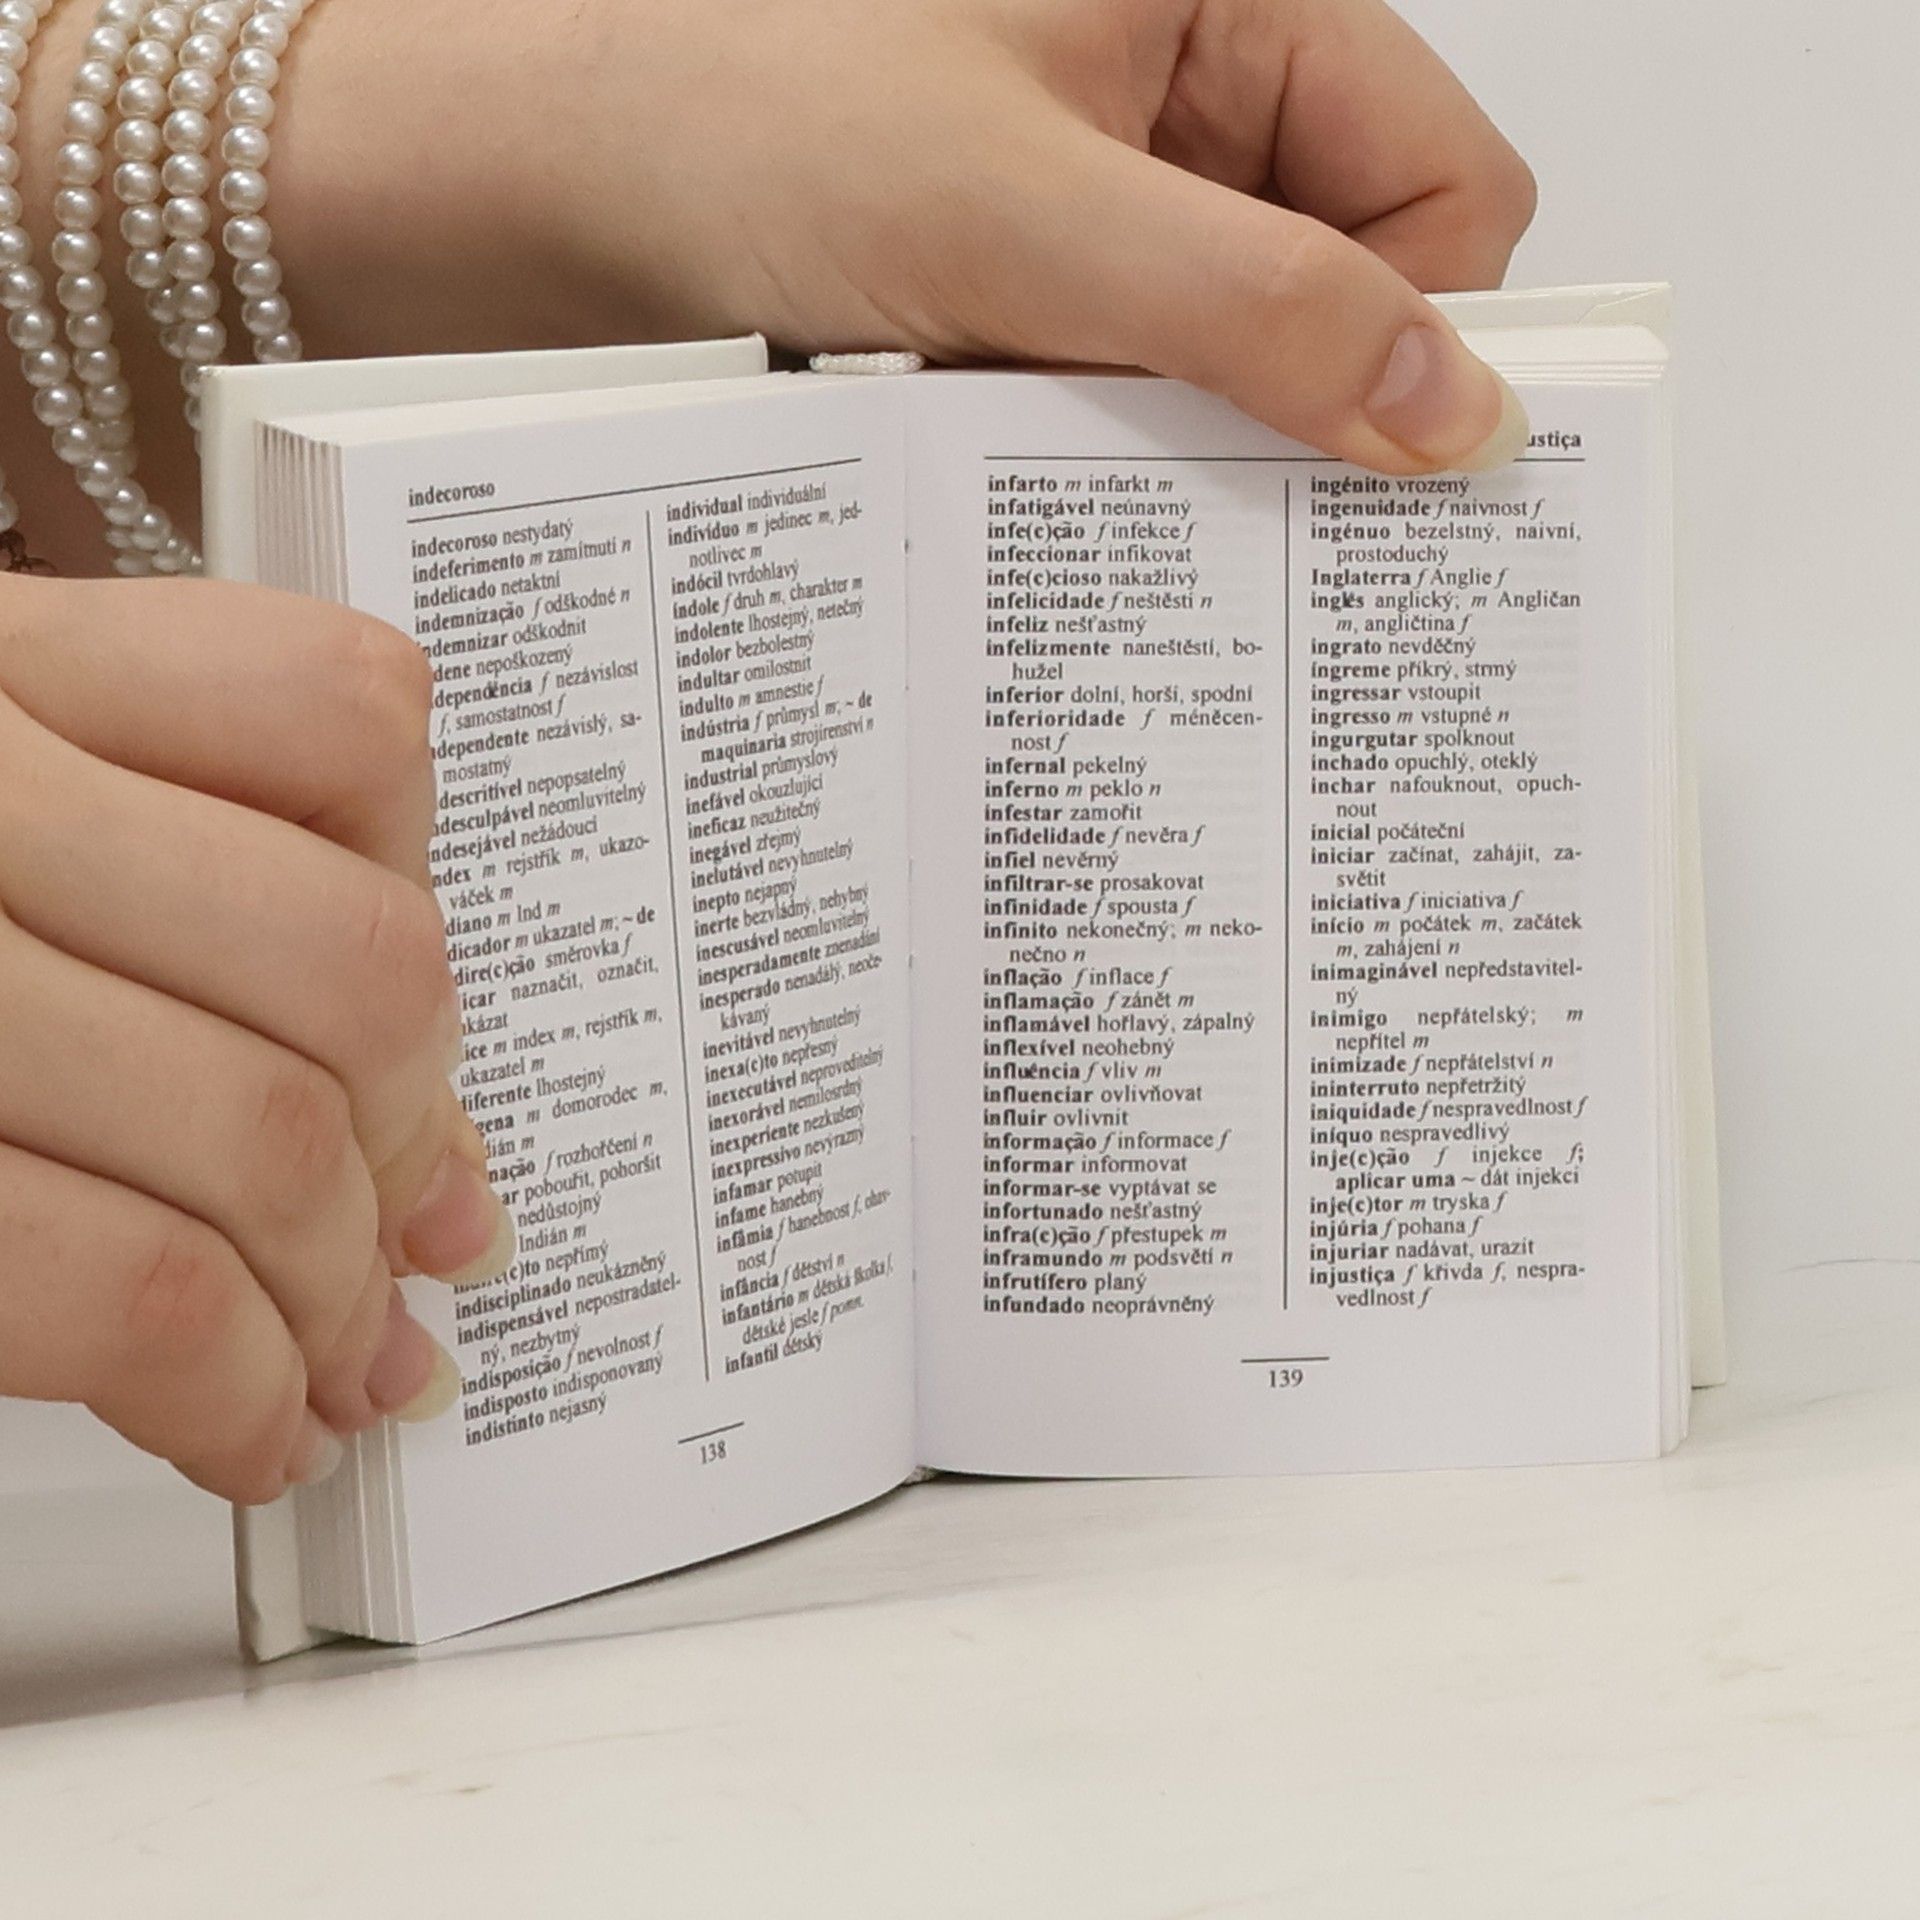 indecoroso
indecoroso nestydatý
indeferimento m zamítnutí n
indelicado netaktní
indemnização f odškodné n
ndemnizar odškodnit
dene nepoškozený
dependência f nezávislost
f, samostatnost f
dependente nezávislý, sa-
mostatný
descritível nepopsatelný
desculpável neomluvitelný
ndesejável nežádoucí
ndex m rejstřík m, ukazo-
váček m
diano m Ind m
dicador m ukazatel m; ~ de
dire(c)ção směrovka f
icar naznačit, označit,
kázat
ice m index m, rejstřík m,
ukazatel m
diferente lhostejný
gena m domorodec m,
dián m
nação f rozhořčení n
ar pobouřit, pohoršit
nedůstojný
Indián m
(c)to nepřímý
indisciplinado neukázněný
indispensável nepostradatel-
ný, nezbytný
indisposição f nevolnost f
indisposto indisponovaný
indistinto nejasný
individual individuální
indivíduo m jedinec m, jed-
notlivec m
indócil tvrdohlavý
índole f druh m, charakter m
indolente lhostejný, netečný
indolor bezbolestný
indultar omilostnit
indulto m amnestie f
indústria f průmysl m; ~ de
maquinaria strojírenství n
industrial průmyslový
inefável okouzlující
ineficaz neužitečný
inegável zřejmý
inelutável nevyhnutelný
inepto nejapný
inerte bezvládný, nehybný
inescusável neomluvitelný
inesperadamente znenadání
inesperado nenadálý, neoče-
kávaný
inevitável nevyhnutelný
inexa(c)to nepřesný
inexecutável neproveditelný
inexorável nemilosrdný
inexperiente nezkušený
inexpressivo nevýrazný
infamar potupit
infame hanebný
infâmia f hanebnost f, ohav-
nost f
infância f dětství n
infantário m dětská školka f,
dětské jesle f pomn.
infantil dětský
138
ustiça
infarto m infarkt m
infatigável neúnavný
infe(c)ção f infekce f
infeccionar infikovat
infe(c)cioso nakažlivý
infelicidade f neštěstí n
infeliz nešťastný
infelizmente naneštěstí, bo-
hužel
inferior dolní, horší, spodní
inferioridade f méněcen-
nost f
infernal pekelný
inferno m peklo n
infestar zamořit
infidelidade f nevěra f
infiel nevěrný
infiltrar-se prosakovat
infinidade f spousta f
infinito nekonečný; m neko-
nečno n
inflação f inflace f
inflamação f zánět m
inflamável hořlavý, zápalný
inflexível neohebný
influência f vliv m
influenciar ovlivňovat
influir ovlivnit
informação f informace f
informar informovat
informar-se vyptávat se
infortunado nešťastný
infra(c)ção f přestupek m
inframundo m podsvětí n
infrutífero planý
infundado neoprávněný
ingénito vrozený
ingenuidade f naivnost f
ingénuo bezelstný, naivní,
prostoduchý
Inglaterra f Anglie f
inglês anglický; m Angličan
m, angličtina f
ingrato nevděčný
íngreme příkrý, strmý
ingressar vstoupit
ingresso m vstupné n
ingurgutar spolknout
inchado opuchlý, oteklý
inchar nafouknout, opuch-
nout
inicial počáteční
iniciar začínat, zahájit, za-
světit
iniciativa f iniciativa f
início m počátek m, začátek
m, zahájení n
inimaginável nepředstavitel-
ný
inimigo nepřátelský; m
nepřítel m
inimizade f nepřátelství n
ininterruto nepřetržitý
iniquidade f nespravedlnost f
iníquo nespravedlivý
inje(c)ção f injekce f;
aplicar uma ~ dát injekci
inje(c)tor m tryska f
injúria f pohana f
injuriar nadávat, urazit
injustiça f křivda f, nespra-
vedlnost f
139